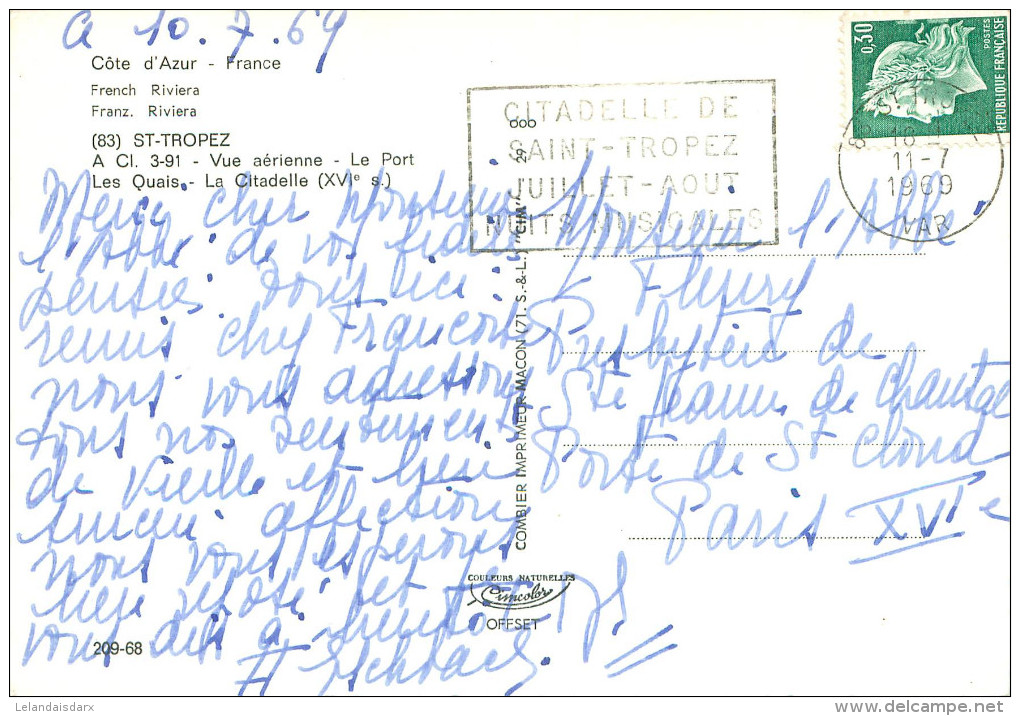 a 10.7.69
Côte d'Azur - France
French Riviera
Franz. Riviera
(83) ST-TROPEZ
A Cl. 3-91 - Vue aérienne - Le Port
Les Quais - La Citadelle (XVIe s.)
Merci cher Monsieur
l'Abbé de vos
pensées
réunis chez François
nous vous adressons
tous nos sentiments
de vieille et bien
affection
nous vous espérons
bien reposé et
vous dis à bientôt
209-68
COMBIER IMPRIMEUR MACON (71. S.-&-L.) "CIM"
COULEURS NATURELLES
Cimcolor
OFFSET
CITADELLE DE
SAINT-TROPEZ
JUILLET-AOUT
NUITS MUSICALES
0,30
POSTES
REPUBLIQUE FRANÇAISE
11-7
1969
VAR
Monsieur l'Abbé
Fleury
Presbytère de
Ste Jeanne de Chantal
Porte de St Cloud
Paris XVIe
Lelandaisdarx